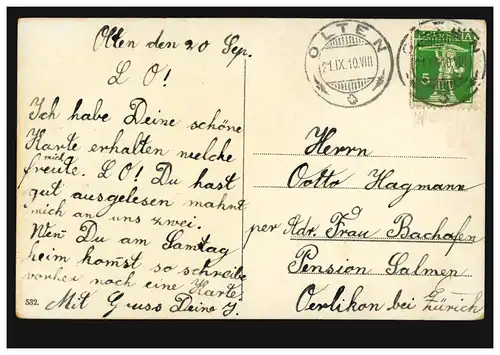 Olten den 20 Sep.
L O!
Ich habe Deine schöne
Karte erhalten welche
mich
freute. LO! Du hast
gut ausgelesen mahnt
mich an uns zwei.
Wen Du am Samtag
heim komst so schreibe
vorher noch eine Karte.
Mit Gruss Deine J.
532.
OLTEN
21.IX.10.VIII
HELVETIA
5
Herrn
Ootto Hagmann
per Adr. Frau Bachofen
Pension Salmen
Oerlikon bei Zürich